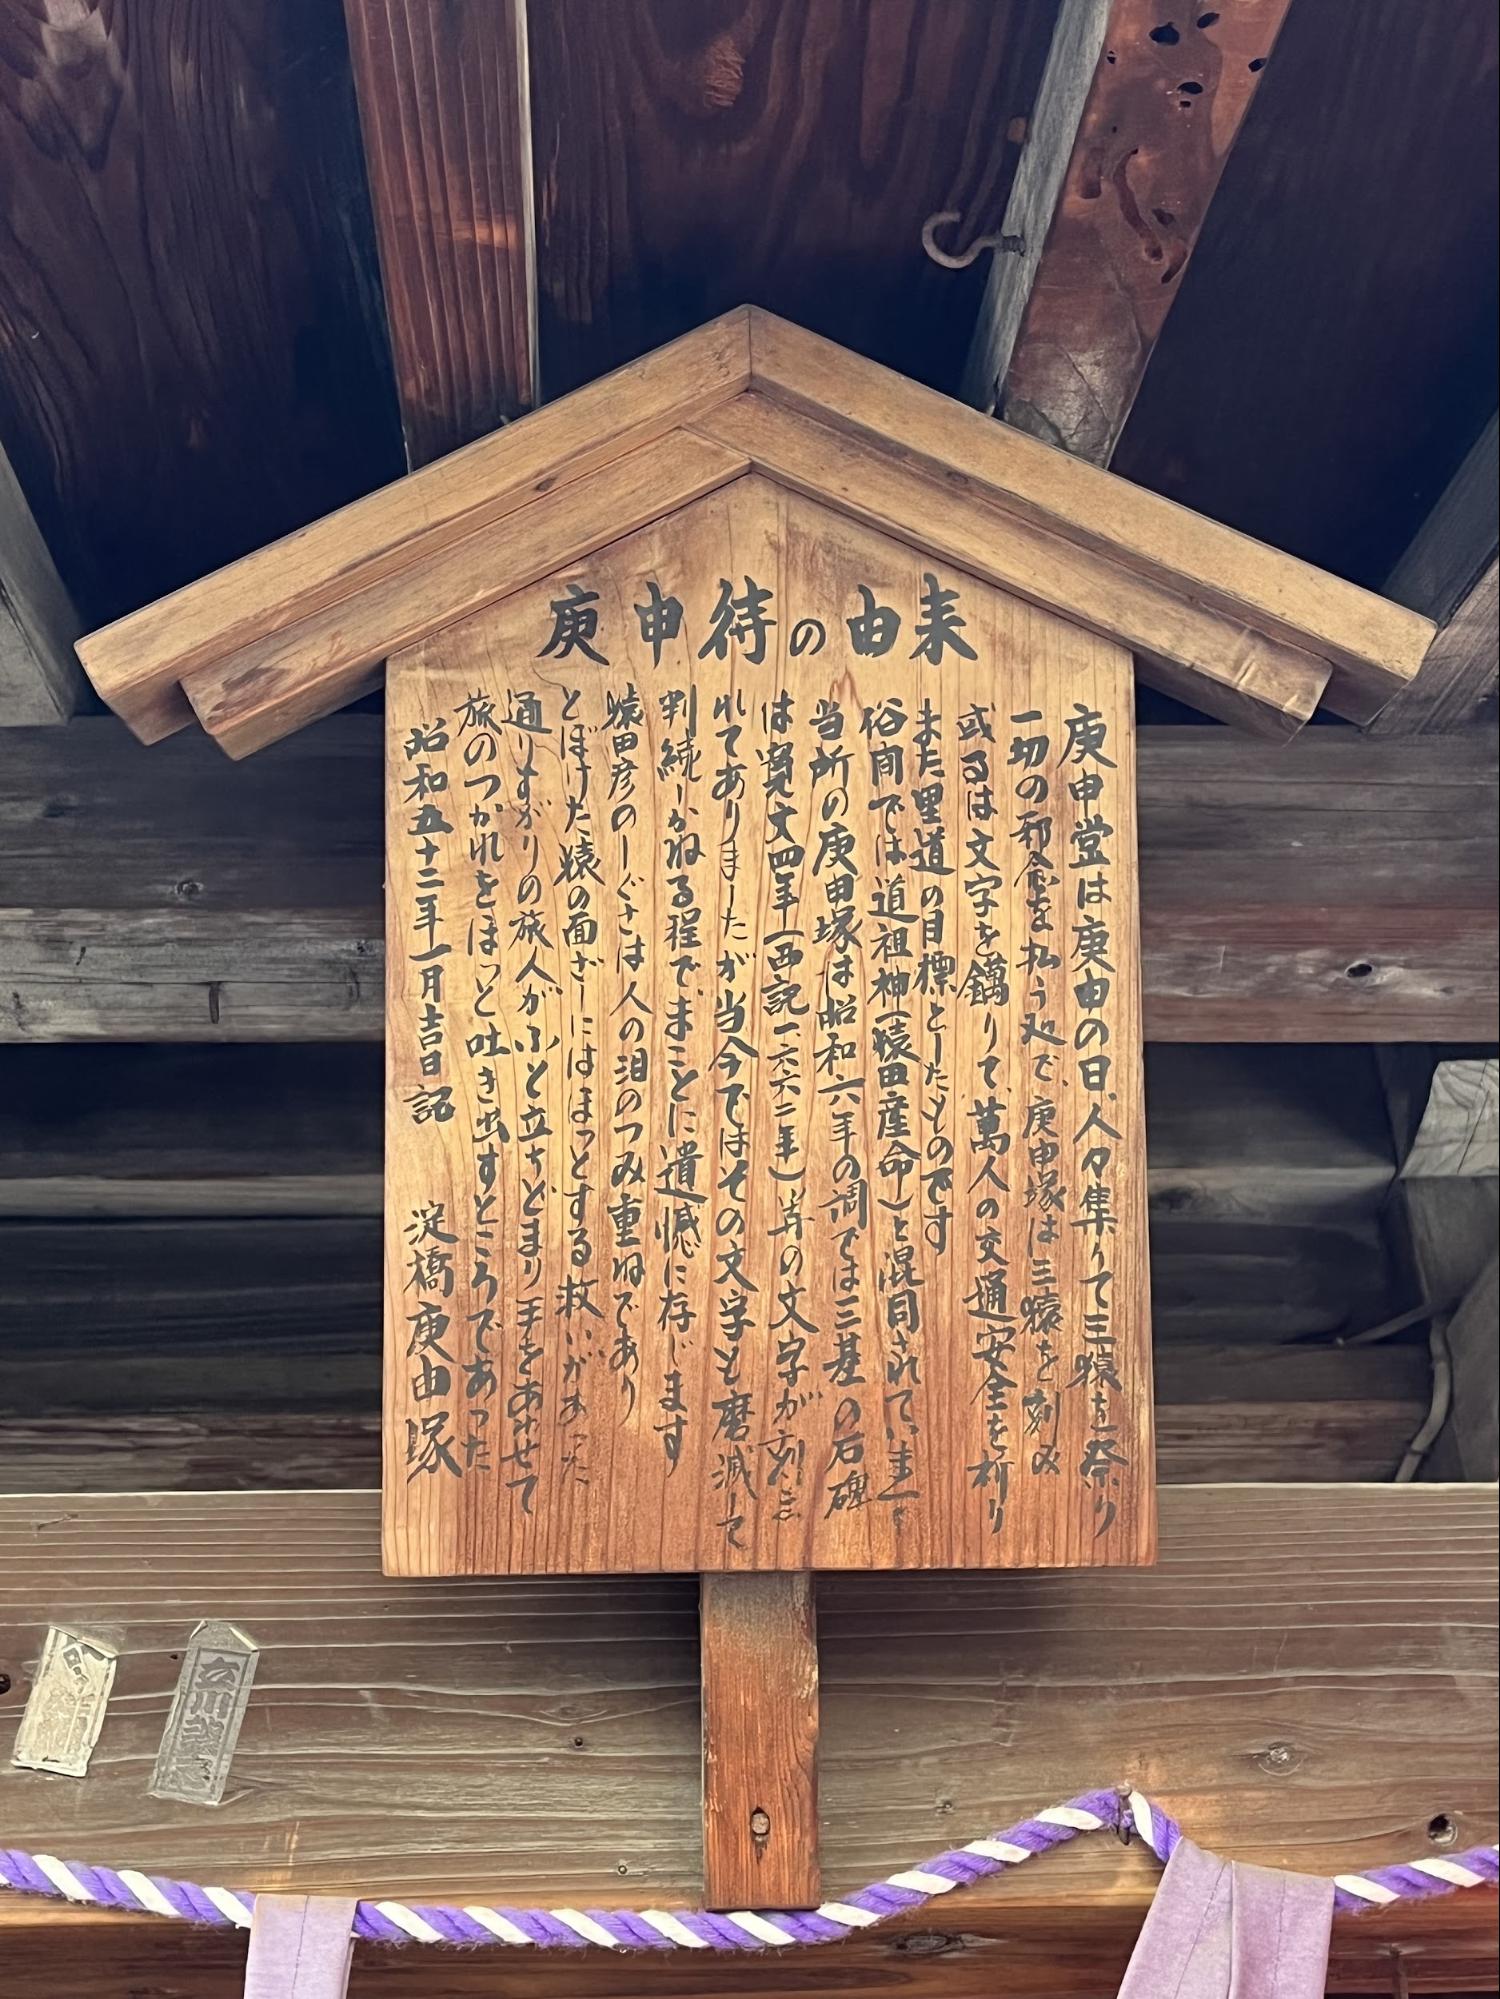 庚申待の由来
庚申堂は庚申の日、人々集りて三猿を祭り
一切の邪念を払う処で、庚申塚は三猿を刻み
或るは文字を鐫りて、萬人の交通安全を祈り
また里道の目標としたものです
俗間では道祖神(猿田彦命)と混同されています
当所の庚申塚は昭和六年の調では三基の石碑
は寛文四年(西記一六六二年)等の文字が刻ま
れてありましたが当今ではその文字も磨滅して
判読しかねる程でまことに遺憾に存じます
猿田彦のしぐさは人の泪のつみ重ねであり
とぼけた猿の面ざしにはほっとする救いがあった
通りすがりの旅人がふと立ちどまり手をあわせて
旅のつかれをほっと吐き出すところであった
昭和五十二年一月吉日記 淀橋庚申塚